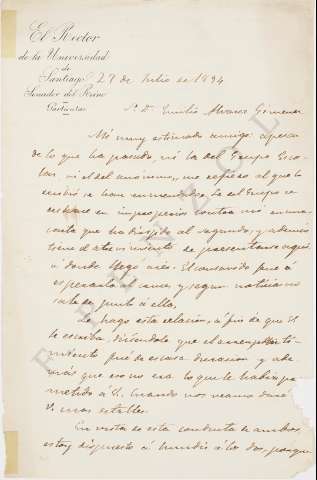 El Rector
de la Universidad
de
Santiago
Senador del Reino
Particular
27 de Julio de 1894
Sr. D. Emilio Alvarez Gimenez
Mi muy estimado amigo: apesar
de lo que ha pasado, ni la del Grupo Esco-
lar, ni el del anónimo, me refiero al que lo
escribió se han enmendado. La del Grupo se
en improperios contra mi en una
carta que ha dirigido al segundo, y además
tiene el atrevimiento de presentarse aquí
á donde llegó ayer. El consabido fué á
esperarla y segun noticias no
sale de junto á ella.
Le hago esta relacion, á fin de que V.
le escriba, diciéndole que el arrepenti-
miento fué de escasa duracion y ade-
más que eso no era lo que le había pro-
metido á V. Cuando nos veamos daré
á V. mas detalles.
En vista de esta conducta de ambos,
estoy dispuesto á hundir á los dos, porque